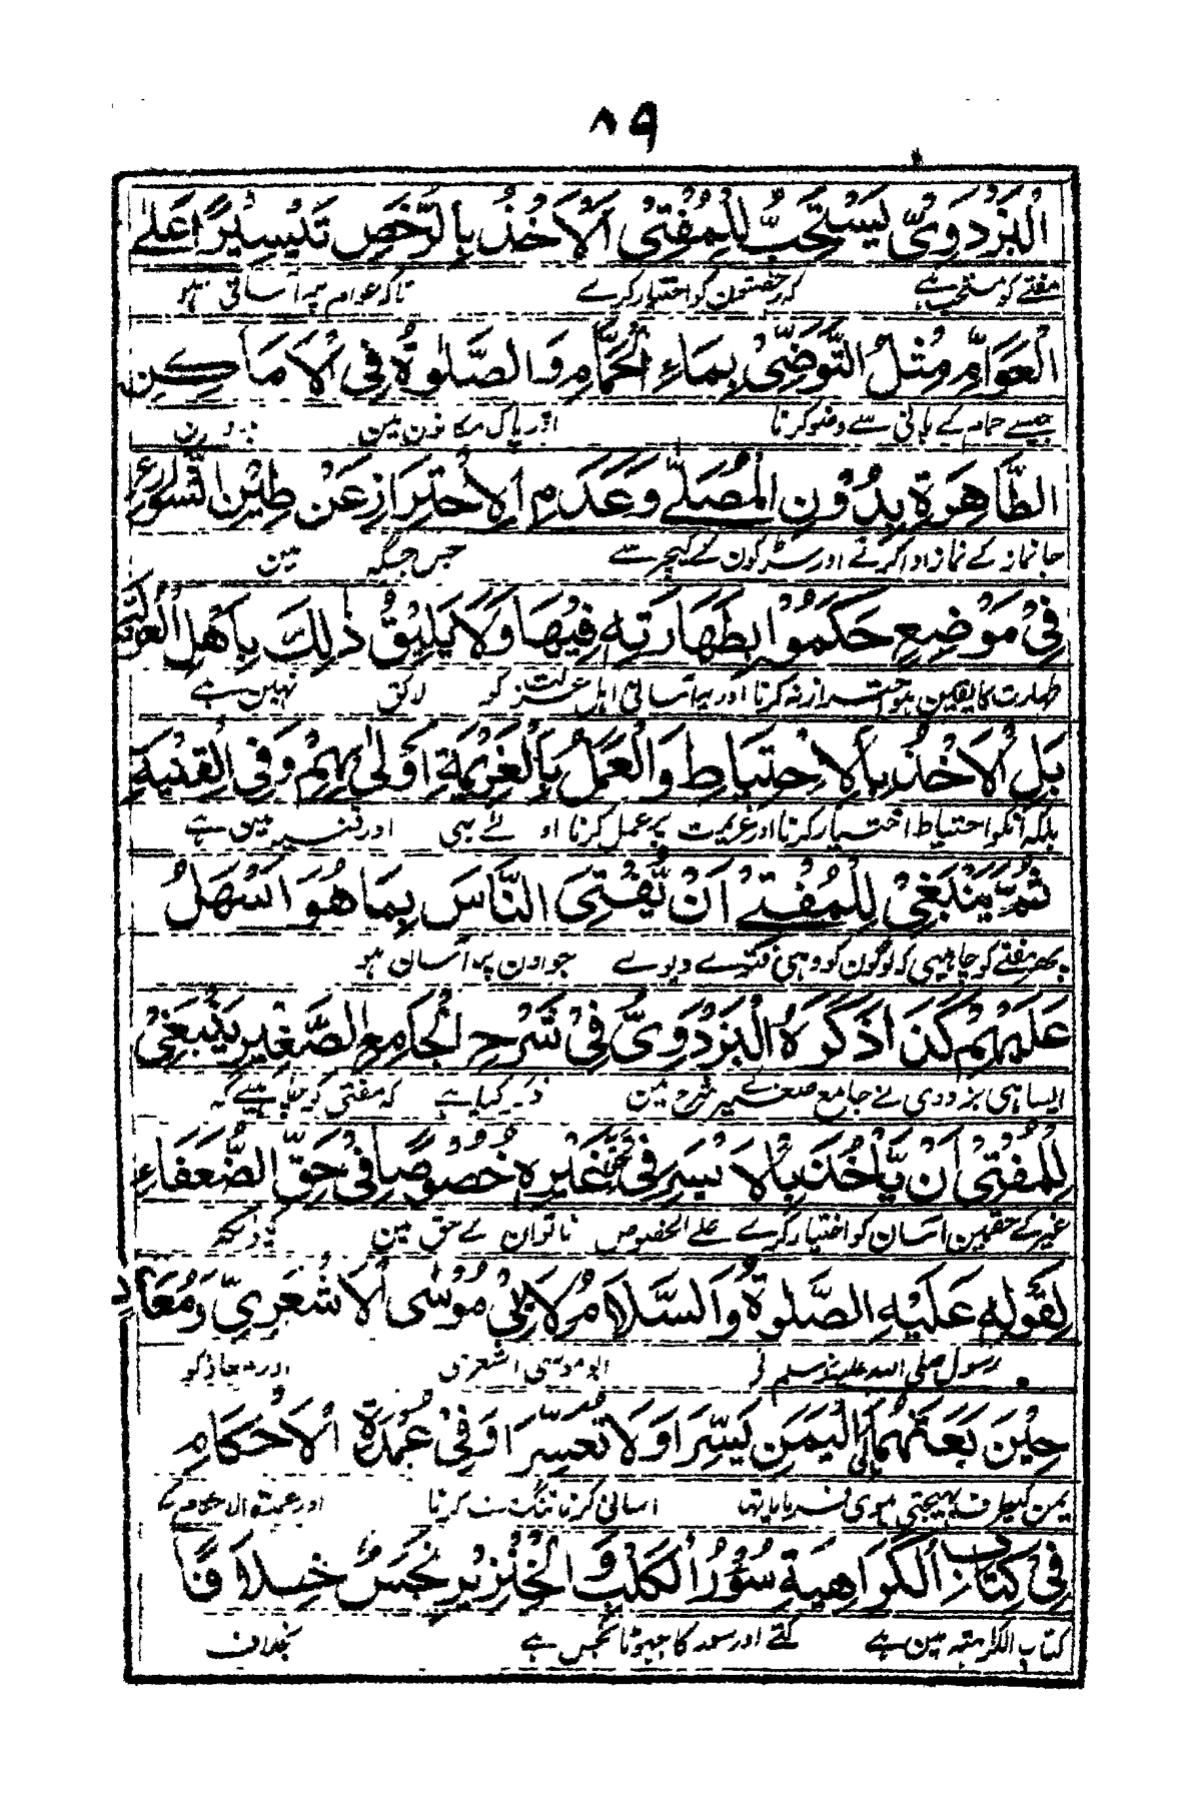 ٨٩
الْبَزْدَوِيُّ يَسْتَحِبُّ لِلْمُفْتِيْ اَلْاَخْذُ بِالرُّخَصِ تَيْسِيْرًا عَلَى
مفتے کو مستحب ہے کہ رخصتون کو اختیار کرے تاکہ عوام پہ آسانی ہو
الْعَوَامِّ مِثْلُ التَّوَضِّيْ بِمَاءِ الْحَمَّامِ وَالصَّلٰوةُ فِي الْاَمَاكِنِ
جیسے حمام کے پانی سے وضو کرنا اور پاک مکانون مین بدون
الطَّاهِرَةِ بِدُوْنِ الْمُصَلّٰے وَعَدَمِ الْاِحْتِرَازِ عَنْ طِيْنِ الشَّوَارِعِ
جانماز کے نماز ادا کرنے اور سڑکون کے کیچر سے جس جگہ مین
فِيْ مَوْضِعٍ حَكَمُوْا بِطَهَارَتِهٖ فِيْهَا وَلَا يَلِيْقُ ذٰلِكَ بِاَهْلِ الْعُزْلَةِ
طہارت کا یقین ہو احتراز نہ کرنا اور یہ آسانی اہل عزلت کو لائق نہین ہے
بَلِ الْاَخْذُ بِالْاِحْتِيَاطِ وَالْعَمَلُ بِالْعَزِيْمَةِ اَوْلٰى بِهِمْ وَفِي الْقِنْيَةِ
بلکہ انکو احتیاط اختیار کرنا اور عزیمت پر عمل کرنا اولے ہی اور قنیہ مین ہے
ثُمَّ يَنْبَغِيْ لِلْمُفْتِيْ اَنْ يُّفْتِيَ النَّاسَ بِمَا هُوَ اَسْهَلُ
پھر مفتے کو چاہیی کہ لوگون کو وہی فتوے دیوے جو اون پر آسان ہو
عَلَيْهِمْ كَذَا ذَكَرَهُ الْبَزْدَوِيُّ فِيْ شَرْحِ الْجَامِعِ الصَّغِيْرِ يَنْبَغِيْ
ایسا ہی بزدوی نے جامع صغیر کے شرح مین ذکر کیا ہے کہ مفتی کو چاہیے کہ
لِلْمُفْتِيْ اَنْ يَّاْخُذَ بِالْاَيْسَرِ فِيْ حَقِّ غَيْرِهٖ خُصُوْصًا فِيْ حَقِّ الضُّعَفَاءِ
غیر کے حقمین آسان کو اختیار کرے علے الخصوص ناتوان کے حق مین کیونکہ
لِقَوْلِهٖ عَلَيْهِ الصَّلٰوةُ وَالسَّلَامُ لِاَبِيْ مُوْسٰى الْاَشْعَرِيِّ وَمُعَاذٍ
رسول صلی اللہ علیہ وسلم نے ابو موسی اشعری اور معاذ کو
حِيْنَ بَعَثَهُمَا اِلَى الْيَمَنِ يَسِّرَا وَلَا تُعَسِّرَا وَفِيْ عُمْدَةِ الْاَحْكَامِ
یمن کیطرف بھیجتی ہوی فرمایا تھا آسانی کرنا تنگ مت کرنا اور عمدۃ الاحکام کے
فِيْ كِتَابِ الْكَرَاهِيَةِ سُؤْرُ الْكَلْبِ وَالْخِنْزِيْرِ نَجَسٌ خِلَافًا
کتاب الکراہتہ مین ہے کتے اور سور کا جھوٹا نجس ہے بخلاف